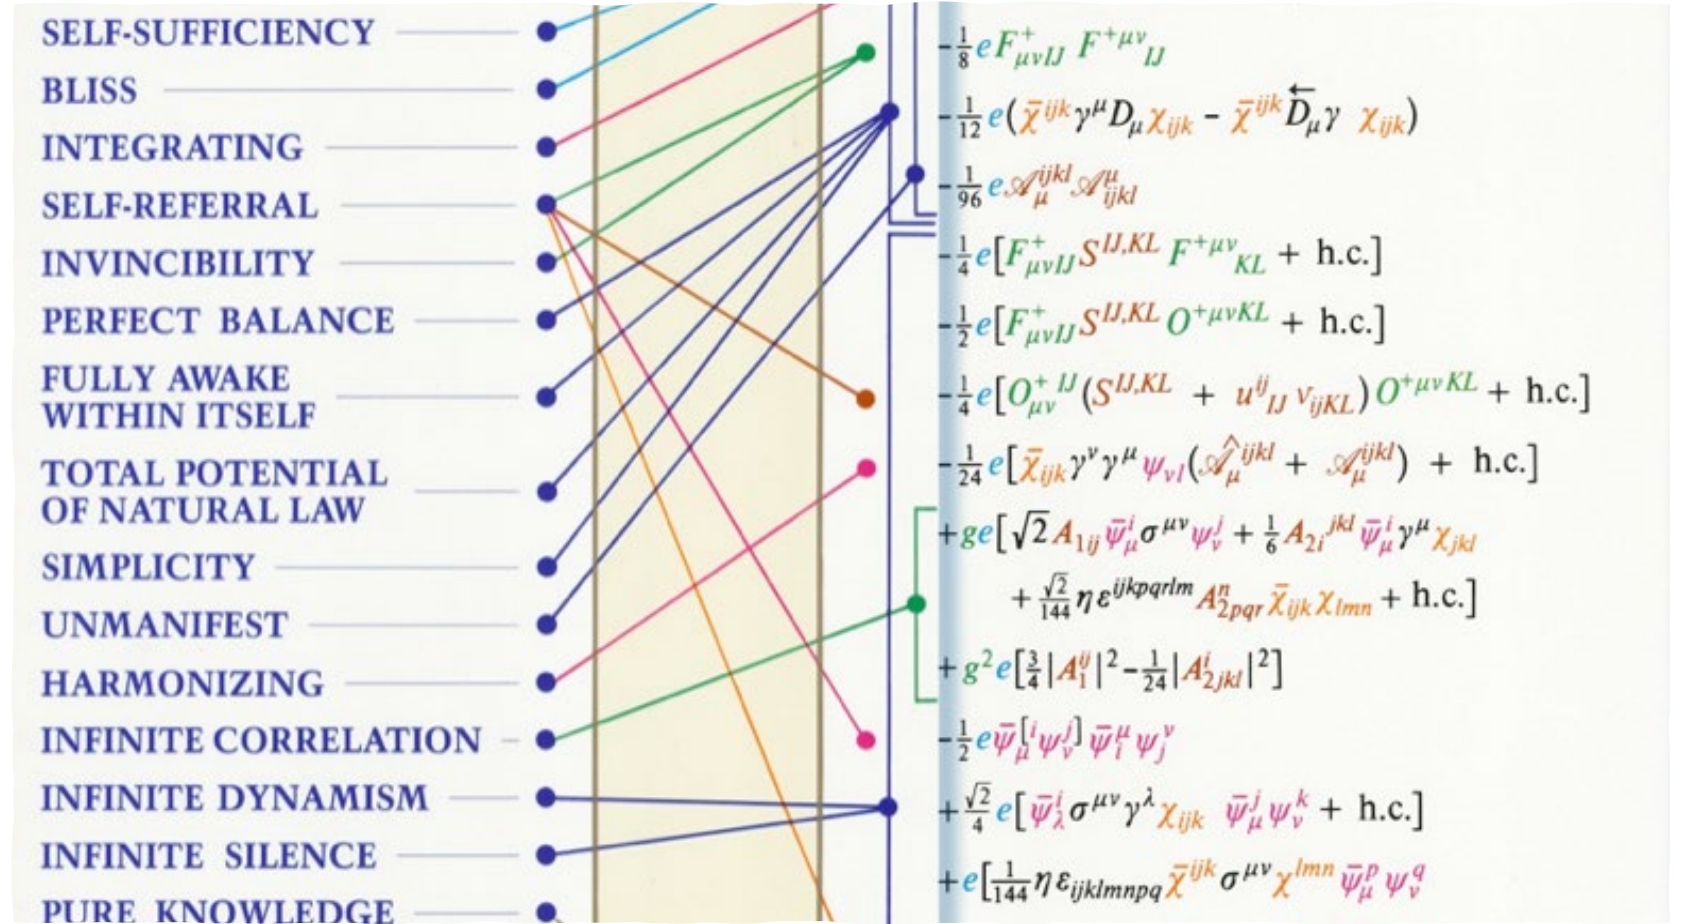 SELF-SUFFICIENCY
BLISS
INTEGRATING
SELF-REFERRAL
INVINCIBILITY
PERFECT BALANCE
FULLY AWAKE
WITHIN ITSELF
TOTAL POTENTIAL
OF NATURAL LAW
SIMPLICITY
UNMANIFEST
HARMONIZING
INFINITE CORRELATION
INFINITE DYNAMISM
INFINITE SILENCE
PURE KNOWLEDGE
-1/8 e F^+_{μνIJ} F^{+μν}_{IJ}
-1/12 e(χ̄^{ijk} γ^μ D_μ χ_{ijk} - χ̄^{ijk} D⃖_μ γ χ_{ijk})
-1/96 e 𝒜_μ^{ijkl} 𝒜^μ_{ijkl}
-1/4 e[F^+_{μνIJ} S^{IJ,KL} F^{+μν}_{KL} + h.c.]
-1/2 e[F^+_{μνIJ} S^{IJ,KL} O^{+μνKL} + h.c.]
-1/4 e[O^+_{μν}^{IJ} (S^{IJ,KL} + u^{ij}_{IJ} v_{ijKL}) O^{+μνKL} + h.c.]
-1/24 e[χ̄_{ijk} γ^ν γ^μ ψ_{νl} (𝒜̂_μ^{ijkl} + 𝒜_μ^{ijkl}) + h.c.]
+ge[√2 A_{1ij} ψ̄^i_μ σ^{μν} ψ^j_ν + 1/6 A_{2i}^{jkl} ψ̄^i_μ γ^μ χ_{jkl}
+ √2/144 η ε^{ijkpqrlm} A^n_{2pqr} χ̄_{ijk} χ_{lmn} + h.c.]
+g²e[3/4 |A_1^{ij}|² - 1/24 |A^i_{2jkl}|²]
-1/2 e ψ̄_μ^{[i} ψ_ν^{j]} ψ̄_i^μ ψ_j^ν
+√2/4 e[ψ̄^i_λ σ^{μν} γ^λ χ_{ijk} ψ̄^j_μ ψ^k_ν + h.c.]
+e[1/144 η ε_{ijklmnpq} χ̄^{ijk} σ^{μν} χ^{lmn} ψ̄^p_μ ψ^q_ν